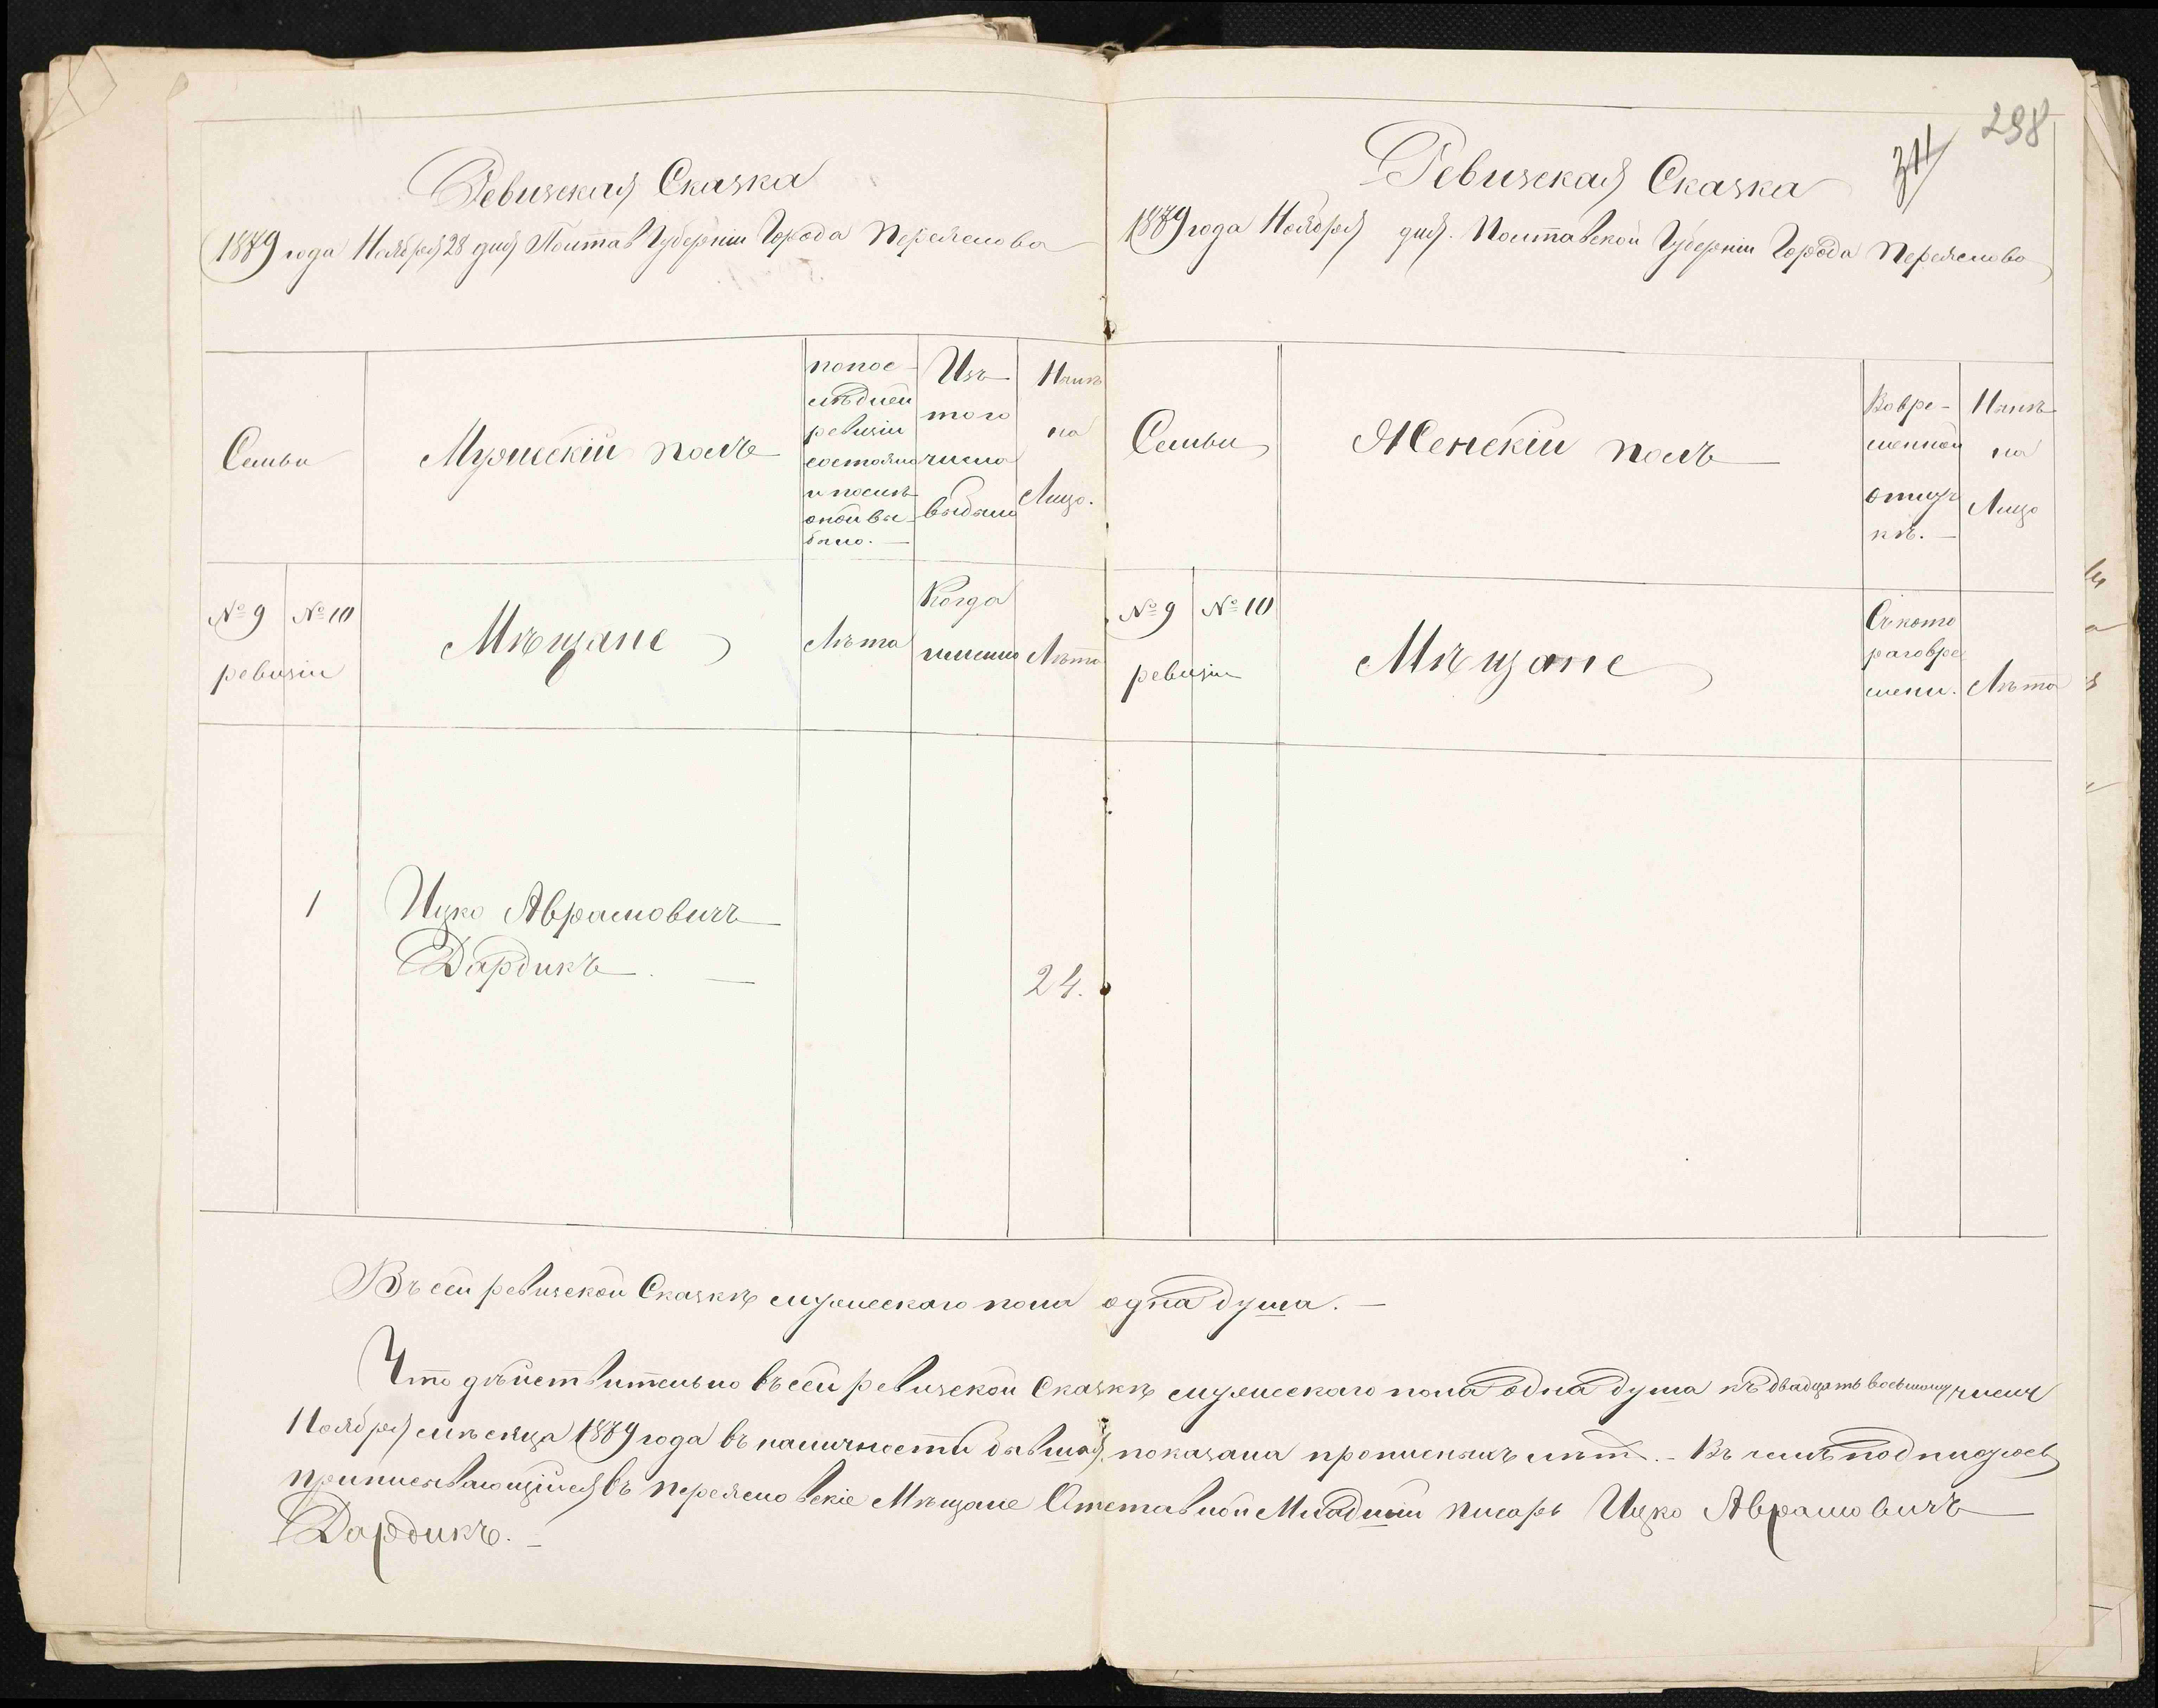 Ревизская Сказка
1879 года Ноября 28 дня Полтав Губерніи Города Переяслова
Семьи
Мужескій полъ
попос-
лѣдней
ревизіи
состояло
и послѣ
оной вы-
было. —
Изъ
того
числа
выбыло
Нынѣ
на
Лицо.
№ 9
№ 10
ревизіи
Мѣщане
Лѣта
Когда
именно
Лѣта
1
Ицко Аврамовичъ
Дардикъ. —
24.
298
311
Ревизская Сказка
1879 года Ноября дня. Полтавской Губерніи Города Переяслова
Семьи
Женскій полъ
Вовре-
менной
отлуч
кѣ. —
Нынѣ
на
Лицо
№ 9
№ 10
ревизіи
Мѣщане
Съ кото
раговре
мени.
Лѣта
Въ сей ревизской Сказкѣ мужескаго пола одна душа. —
Что дѣйствительно въ сей ревизской Сказкѣ мужескаго пола одна душа къ двадцать восьмому числу
Ноября мѣсяца 1879 года въ наличности бывшая, показана прописныхъ лѣтъ. - Въ чемъ подписуюсь
приписывающійся въ Переясловскіе Мѣщане Отставной Младшій писарь Ицко Аврамовичъ
Дардикъ. —